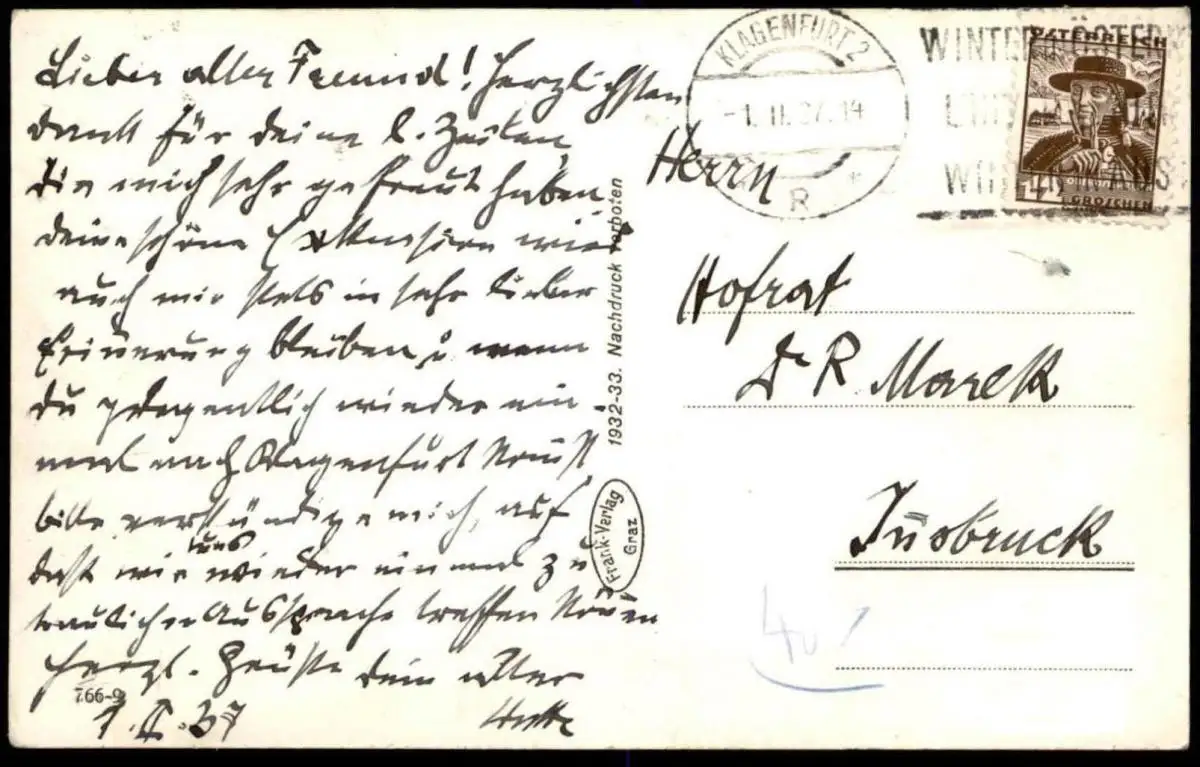 Lieber alter Freund! Herzlichsten
Dank für deine l. Zeilen,
die mich sehr gefreut haben.
Deine schöne Exkursion wird
auch mir stets in sehr lieber
Erinnerung bleiben u. wenn
du gelegentlich wieder ein-
mal nach Klagenfurt komst,
bitte verständige mich, auf
daß wir uns wieder einmal zu
traulicher Aussprache treffen können
Herzl. Grüße dein alter
766-9
1.II.37
1932-33. Nachdruck verboten
Frank-Verlag
Graz
KLAGENFURT 2
-1. II. 37. 14
R *
WINTER
ÖSTERREICH
GROSCHEN
Herrn
Hofrat
Dr R. Marek
Insbruck
40